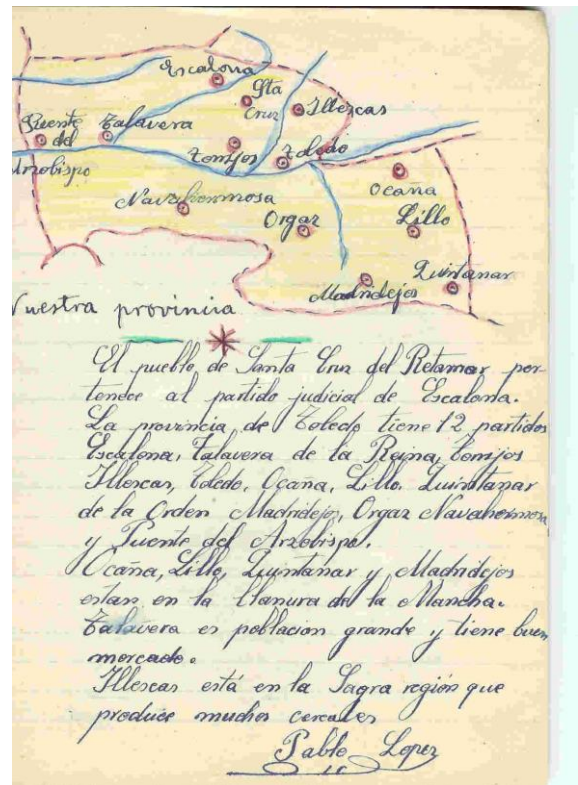 Escalona
Sta
Cruz
Illescas
Puente
del
Arzobispo
Talavera
Torrijos
Toledo
Ocaña
Navahermosa
Orgaz
Lillo
Quintanar
Madridejos
Nuestra provincia
El pueblo de Santa Cruz del Retamar per-
tenece al partido judicial de Escalona.
La provincia de Toledo tiene 12 partidos
Escalona, Talavera de la Reina, Torrijos
Illescas, Toledo, Ocaña, Lillo. Quintanar
de la Orden Madridejos, Orgaz Navahermosa
y Puente del Arzobispo.
Ocaña, Lillo, Quintanar y Madridejos
estan en la llanura de la Mancha.
Talavera es poblacion grande y tiene buen
mercado.
Illescas está en la Sagra región que
produce muchos cereales
Pablo Lopez